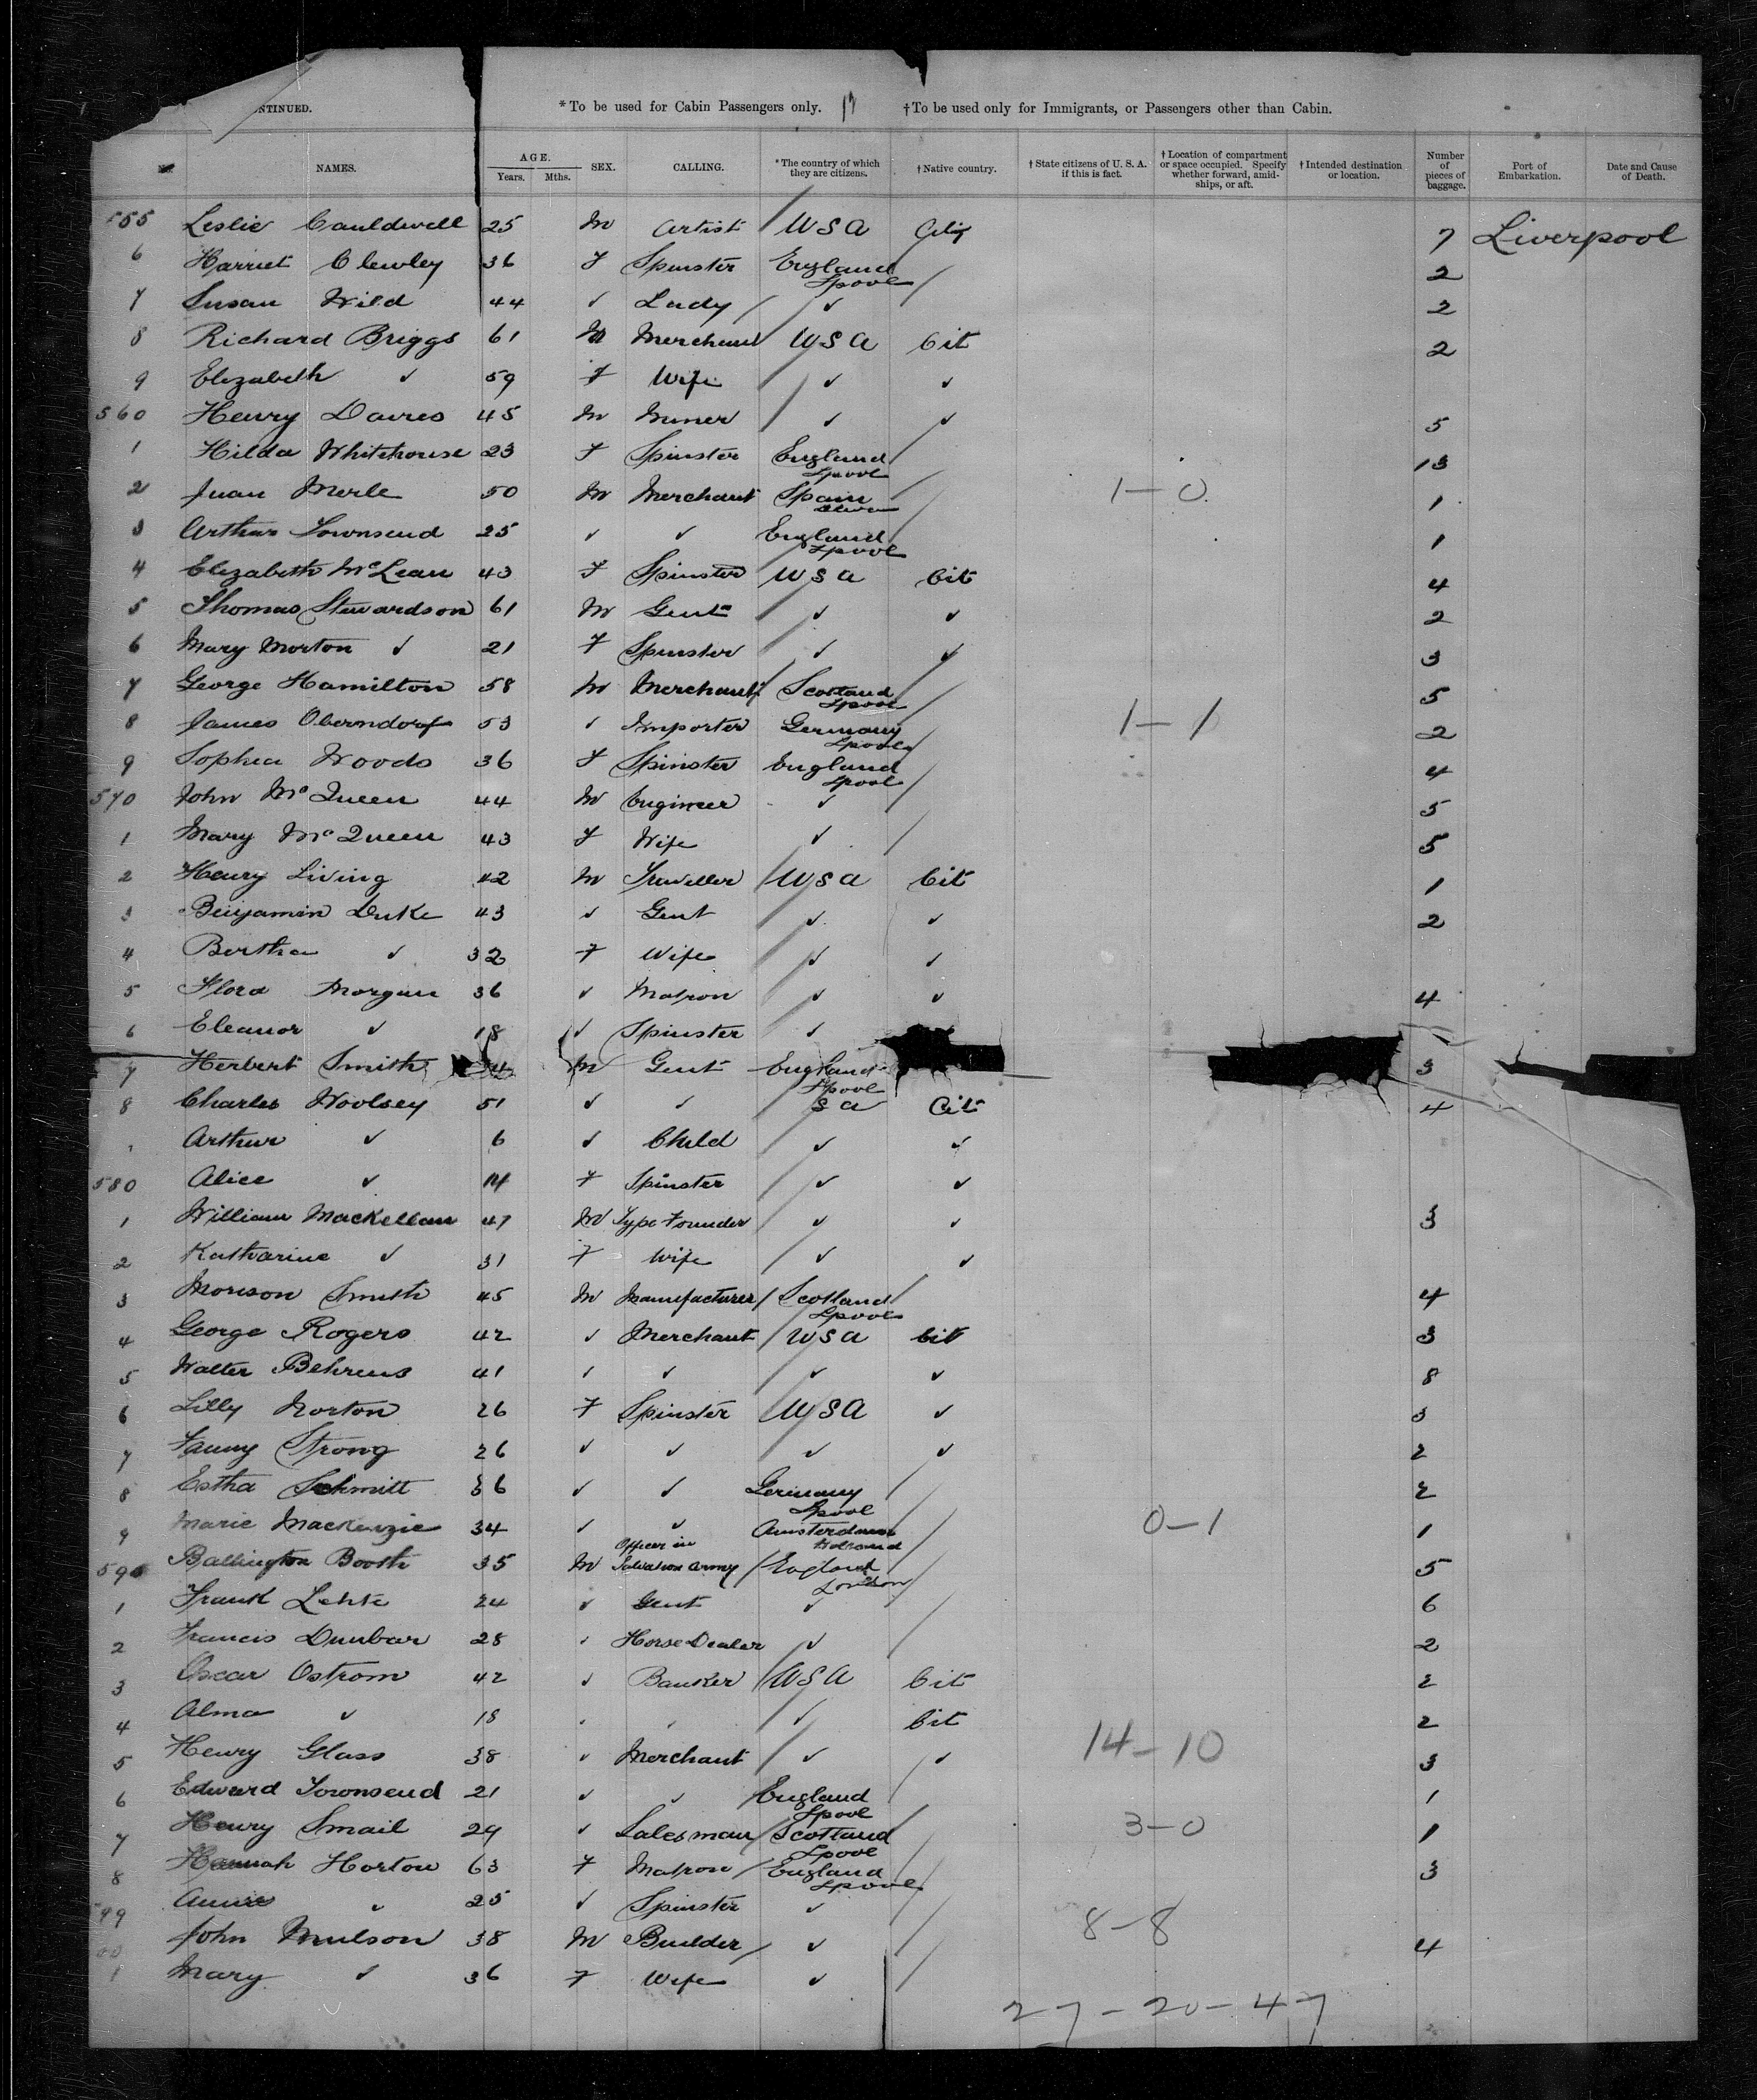 NTINUED. *To be used for Cabin Passengers only. 17 †To be used only for Immigrants, or Passengers other than Cabin.
NAMES. AGE. Years. Mths. SEX. CALLING. *The country of which they are citizens. †Native country. †State citizens of U. S. A. if this is fact. †Location of compartment or space occupied. Specify whether forward, amidships, or aft. †Intended destination or location. Number of pieces of baggage. Port of Embarkation. Date and Cause of Death.
555 Leslie Cauldwell 25 M Artist USA 7 Liverpool
6 Harriet Clewley 36 F Spinster England Lpool 2
7 Susan Wild 44 ✓ Lady ✓ 2
8 Richard Briggs 61 M Merchant USA Cit 2
9 Elizabeth ✓ 59 F Wife ✓ ✓
560 Henry Davies 45 M Miner ✓ ✓ 5
1 Hilda Whitehouse 23 F Spinster England Lpool 13
2 Juan Merle 50 M Merchant Spain 1-0 1
3 Arthur Townsend 25 ✓ ✓ England Lpool 1
4 Elizabeth McLean 43 F Spinster USA Cit 4
5 Thomas Stewardson 61 M Gent ✓ ✓ 2
6 Mary Morton ✓ 21 F Spinster ✓ ✓ 3
7 George Hamilton 58 M Merchant Scotland Lpool 5
8 James Oberndorf 53 ✓ Importer Germany Lpool 1-1 2
9 Sophia Woods 36 F Spinster England Lpool 4
570 John McQueen 44 M Engineer ✓ 5
1 Mary McQueen 43 F Wife ✓ 5
2 Henry Living 42 M Traveller USA Cit 1
3 Benjamin Duke 43 ✓ Gent ✓ ✓ 2
4 Bertha ✓ 32 F Wife ✓ ✓
5 Flora Morgan 36 ✓ Matron ✓ ✓ 4
6 Eleanor ✓ 18 ✓ Spinster ✓
7 Herbert Smith M Gent England Lpool 3
8 Charles Woolsey 51 ✓ ✓ S A Cit 4
Arthur ✓ 6 ✓ Child ✓ ✓
580 Alice ✓ 14 F Spinster ✓ ✓
1 William Mackellan 47 M Type Founder ✓ ✓ 3
2 Katharine ✓ 31 F Wife ✓ ✓
3 Morison Smith 45 M Manufacturer Scotland Lpool 4
4 George Rogers 42 ✓ Merchant USA Cit 3
5 Walter Behrens 41 ✓ ✓ ✓ ✓ 8
6 Lilly Norton 26 F Spinster USA ✓ 3
7 Fanny Strong 26 ✓ ✓ ✓ ✓ 2
8 Estha Schmitt 36 ✓ ✓ Germany Lpool 2
9 Marie Mackenzie 34 ✓ ✓ Amsterdam Holland 0-1 1
590 Ballington Booth 35 M Officer in Salvation Army England London 5
1 Frank 24 ✓ Gent ✓ 6
2 Francis Dunbar 28 ✓ Horse Dealer ✓ 2
3 Oscar Ostrom 42 ✓ Banker USA Cit 2
4 Alma ✓ 18 ✓ ✓ ✓ Cit 2
5 Henry Glass 38 ✓ Merchant ✓ ✓ 14-10 3
6 Edward Townsend 21 ✓ ✓ England Lpool 1
7 Henry Smail 29 ✓ Salesman Scotland Lpool 3-0 1
8 Hannah Horton 63 F Matron England Lpool 3
599 Annie ✓ 25 ✓ Spinster ✓
00 John Mulson 38 M Builder ✓ 8-8 4
1 Mary ✓ 36 F Wife ✓
27-20-47